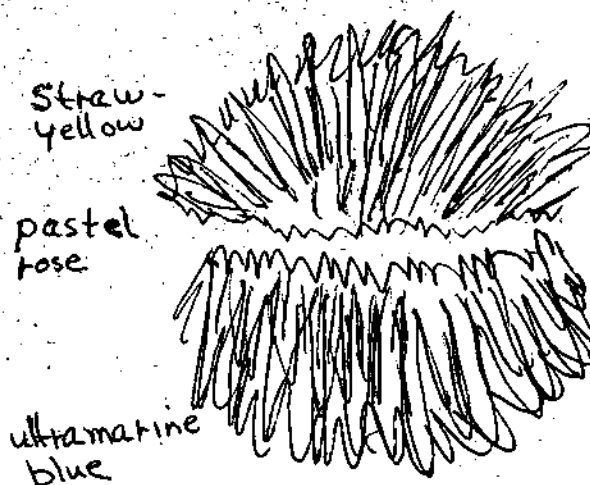 Straw-
yellow
pastel
rose
ultramarine
blue